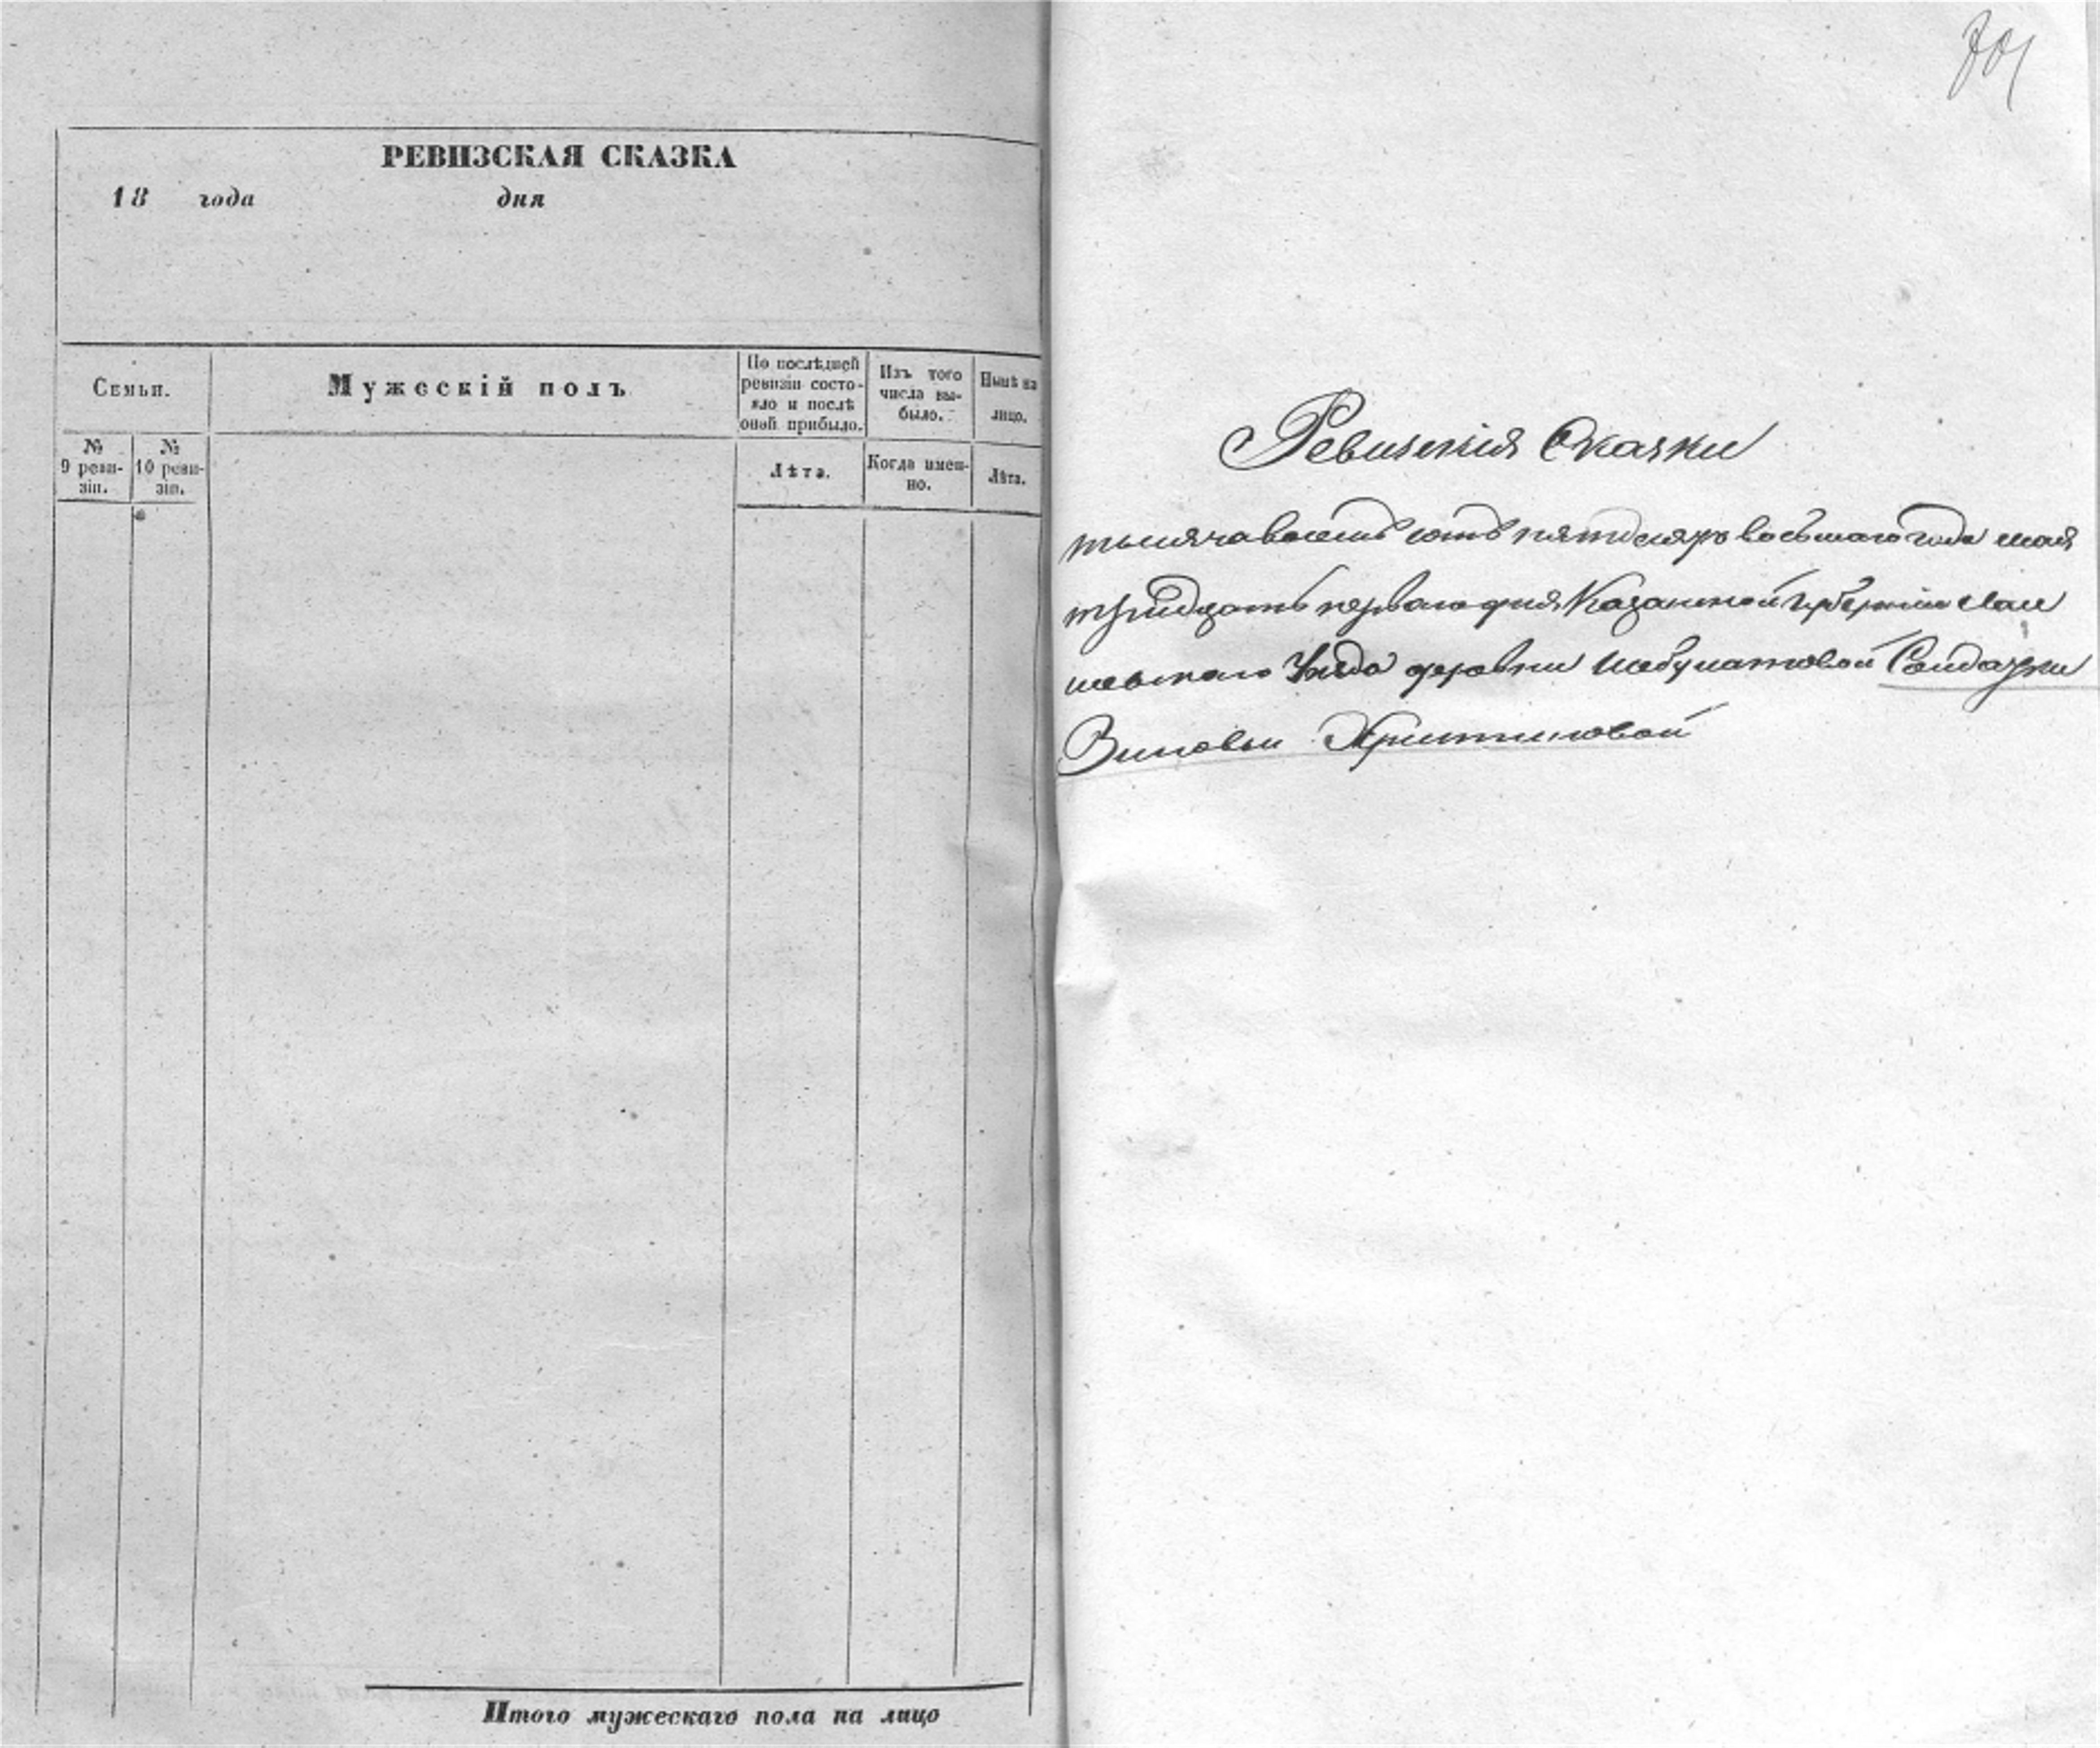 РЕВИЗСКАЯ СКАЗКА
18 года дня
Семьи.
Мужескій полъ
По послѣдней
ревизіи состо-
яло и послѣ
оной прибыло.
Изъ того
числа вы-
было.
Нынѣ на
лицо.
№
9 реви-
зіи.
№
10 реви-
зіи.
Лѣта.
Когда имен-
но.
Лѣта.
Итого мужескаго пола на лицо
701
Ревизскія Сказки
тысяча восемь сотъ пятдесятъ восьмаго года мая
тридцать перваго дня Казанской губерніи Лаи
шевскаго Уѣзда деревни Солдатки
Зиновьи Христиновой